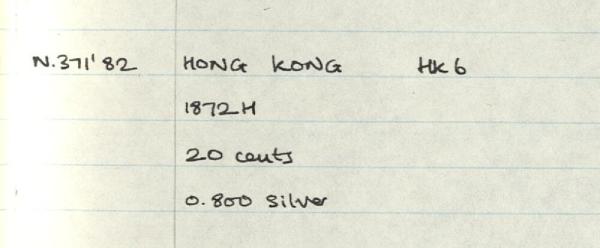 N.371'82 HONG KONG HK6
1872H
20 cents
0.800 silver